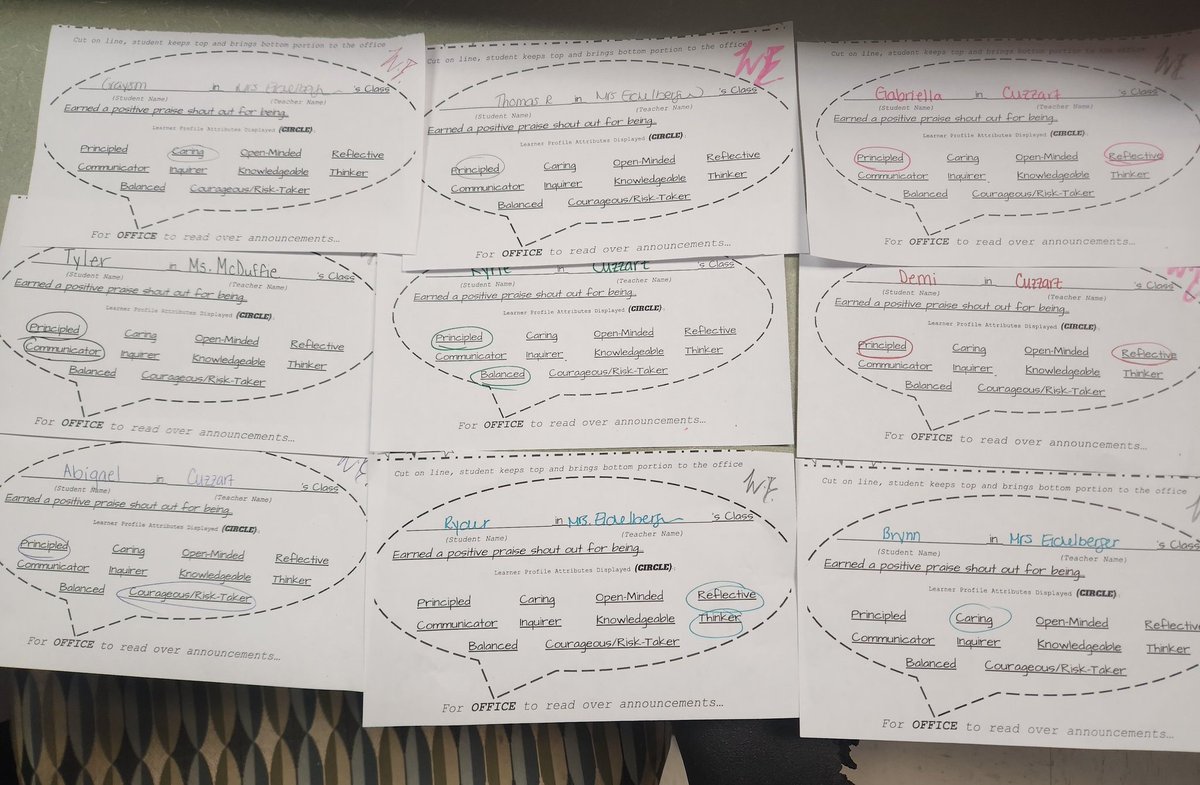 Cut on line, student keeps top and brings bottom portion to the office
W.E.
Grayson in Mrs Eichelbergr 's Class
(Student Name) (Teacher Name)
Earned a positive praise shout out for being..
Learner Profile Attributes Displayed (CIRCLE).
Principled Caring Open-Minded Reflective
Communicator Inquirer Knowledgeable Thinker
Balanced Courageous/Risk-Taker
For OFFICE to read over announcements…
Cut on line, student keeps top and brings bottom portion to the office
WE
Thomas R in Mrs 's Class
(Student Name) (Teacher Name)
Earned a positive praise shout out for being..
Learner Profile Attributes Displayed (CIRCLE).
Principled Caring Open-Minded Reflective
Communicator Inquirer Knowledgeable Thinker
Balanced Courageous/Risk-Taker
For OFFICE to read over announcements…
Cut on line, student keeps top and brings bottom portion to the office
Gabriella in Cuzzart 's Class
(Student Name) (Teacher Name)
Earned a positive praise shout out for being..
Learner Profile Attributes Displayed (CIRCLE).
Principled Caring Open-Minded Reflective
Communicator Inquirer Knowledgeable Thinker
Balanced Courageous/Risk-Taker
For OFFICE to read over announcements…
Tyler in Ms. McDuffie 's Class
(Student Name) (Teacher Name)
Earned a positive praise shout out for being..
Learner Profile Attributes Displayed (CIRCLE).
Principled Caring Open-Minded Reflective
Communicator Inquirer Knowledgeable Thinker
Balanced Courageous/Risk-Taker
For OFFICE to read over announcements…
in Cuzzart 's Class
(Student Name) (Teacher Name)
Earned a positive praise shout out for being..
Learner Profile Attributes Displayed (CIRCLE).
Principled Caring Open-Minded Reflective
Communicator Inquirer Knowledgeable Thinker
Balanced Courageous/Risk-Taker
For OFFICE to read over announcements…
Demi in Cuzzart 's Class
(Student Name) (Teacher Name)
Earned a positive praise shout out for being..
Learner Profile Attributes Displayed (CIRCLE).
Principled Caring Open-Minded Reflective
Communicator Inquirer Knowledgeable Thinker
Balanced Courageous/Risk-Taker
For OFFICE to read over announcements…
W.E.
Abigael in Cuzzart 's Class
(Student Name) (Teacher Name)
Earned a positive praise shout out for being..
Learner Profile Attributes Displayed (CIRCLE).
Principled Caring Open-Minded Reflective
Communicator Inquirer Knowledgeable Thinker
Balanced Courageous/Risk-Taker
For OFFICE to read over announcements…
Cut on line, student keeps top and brings bottom portion to the office
W.E.
Ryder in Mrs. 's Class
(Student Name) (Teacher Name)
Earned a positive praise shout out for being..
Learner Profile Attributes Displayed (CIRCLE).
Principled Caring Open-Minded Reflective
Communicator Inquirer Knowledgeable Thinker
Balanced Courageous/Risk-Taker
For OFFICE to read over announcements…
Cut on line, student keeps top and brings bottom portion to the office
Brynn in Mrs Eichelberger 's Class
(Student Name) (Teacher Name)
Earned a positive praise shout out for being..
Learner Profile Attributes Displayed (CIRCLE).
Principled Caring Open-Minded Reflective
Communicator Inquirer Knowledgeable Thinker
Balanced Courageous/Risk-Taker
For OFFICE to read over announcements…